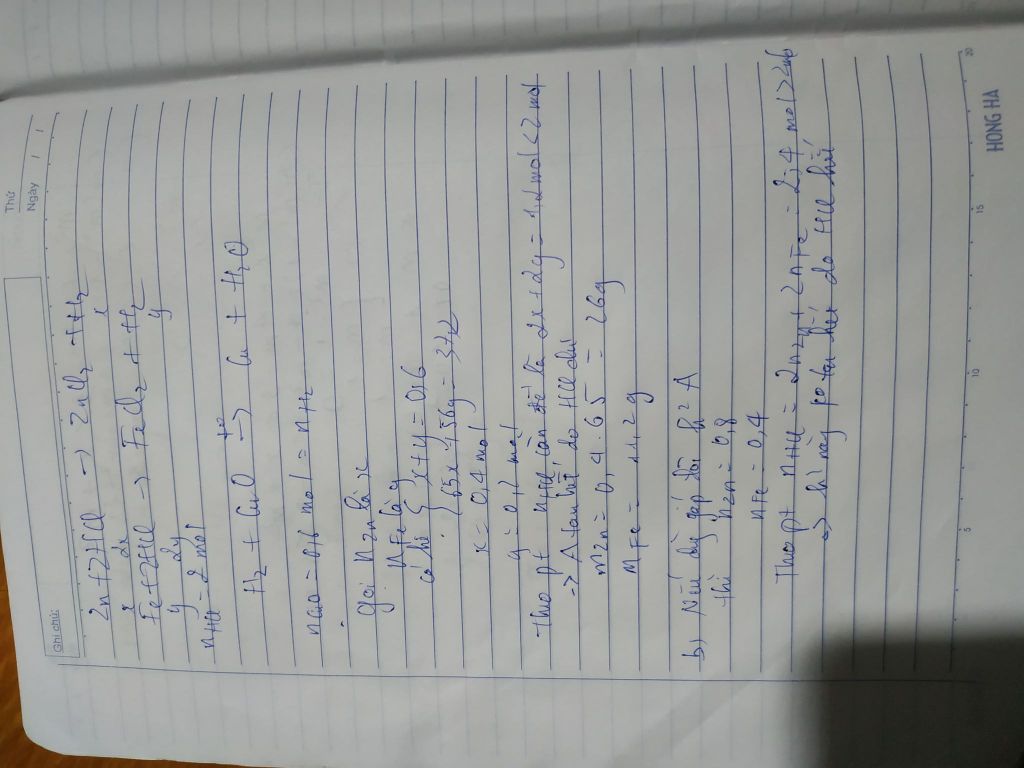 Thứ
Ngày / /
Ghi chú:
Zn + 2HCl → ZnCl₂ + H₂
x 2x x
Fe + 2HCl → FeCl₂ + H₂
y 2y y
nHCl = 2 mol
H₂ + CuO →t° Cu + H₂O
nCuO = 0,6 mol = nH₂
gọi nZn là x
nFe là y
có hệ { x + y = 0,6
{ 65x + 56y = 37,2
x = 0,4 mol
y = 0,2 mol
Theo pt nHCl cần để là 2x + 2y = 1,2 mol < 2 mol
→ A tan hết, do HCl dư
mZn = 0,4 . 65 = 26g
mFe = 11,2 g
b) Nếu dùng gấp đôi h² A
thì nZn = 0,8
nFe = 0,4
Theo pt nHCl = 2nZn + 2nFe = 2,4 mol > 2 mol
→ hh này ko tan hết do HCl hết
5 10 15 20
HONG HA